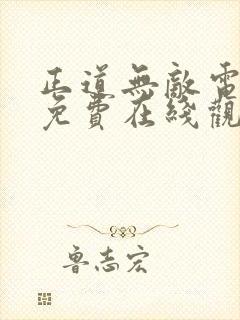 正道無敵電
免費在綫觀
鲁志宏